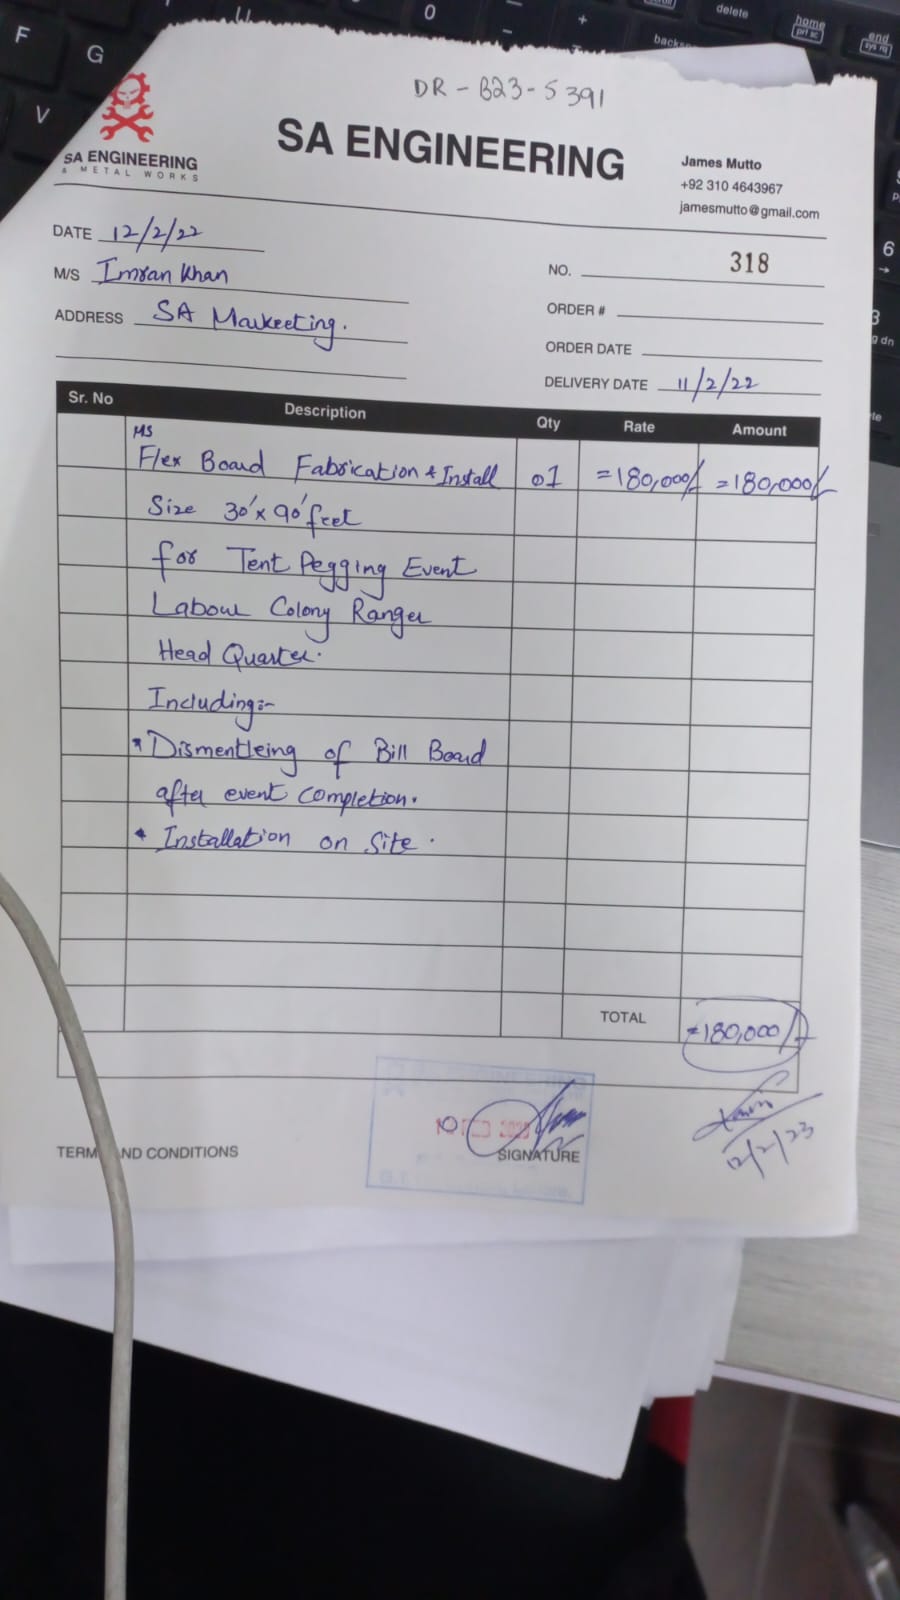 DR - B23-5391
SA ENGINEERING
& METAL WORKS
SA ENGINEERING
James Mutto
+92 310 4643967
jamesmutto@gmail.com
DATE 12/2/22
M/S Imran Khan
ADDRESS SA Markeeting.
NO. 318
ORDER #
ORDER DATE
DELIVERY DATE 11/2/22
Sr. No Description Qty Rate Amount
MS
Flex Board Fabrication & Install 01 =180,000/- =180,000/-
Size 30'x90' feet
for Tent Pegging Event
Labour Colony Ranger
Head Quarter.
Including:-
* Dismentleing of Bill Board
after event completion.
* Installation on Site.
TOTAL =180,000/-
SIGNATURE
12/2/23
TERM ND CONDITIONS
F
G
V
0
+
-
delete
home
prt sc
end
sys rq
backs
6
3
g dn